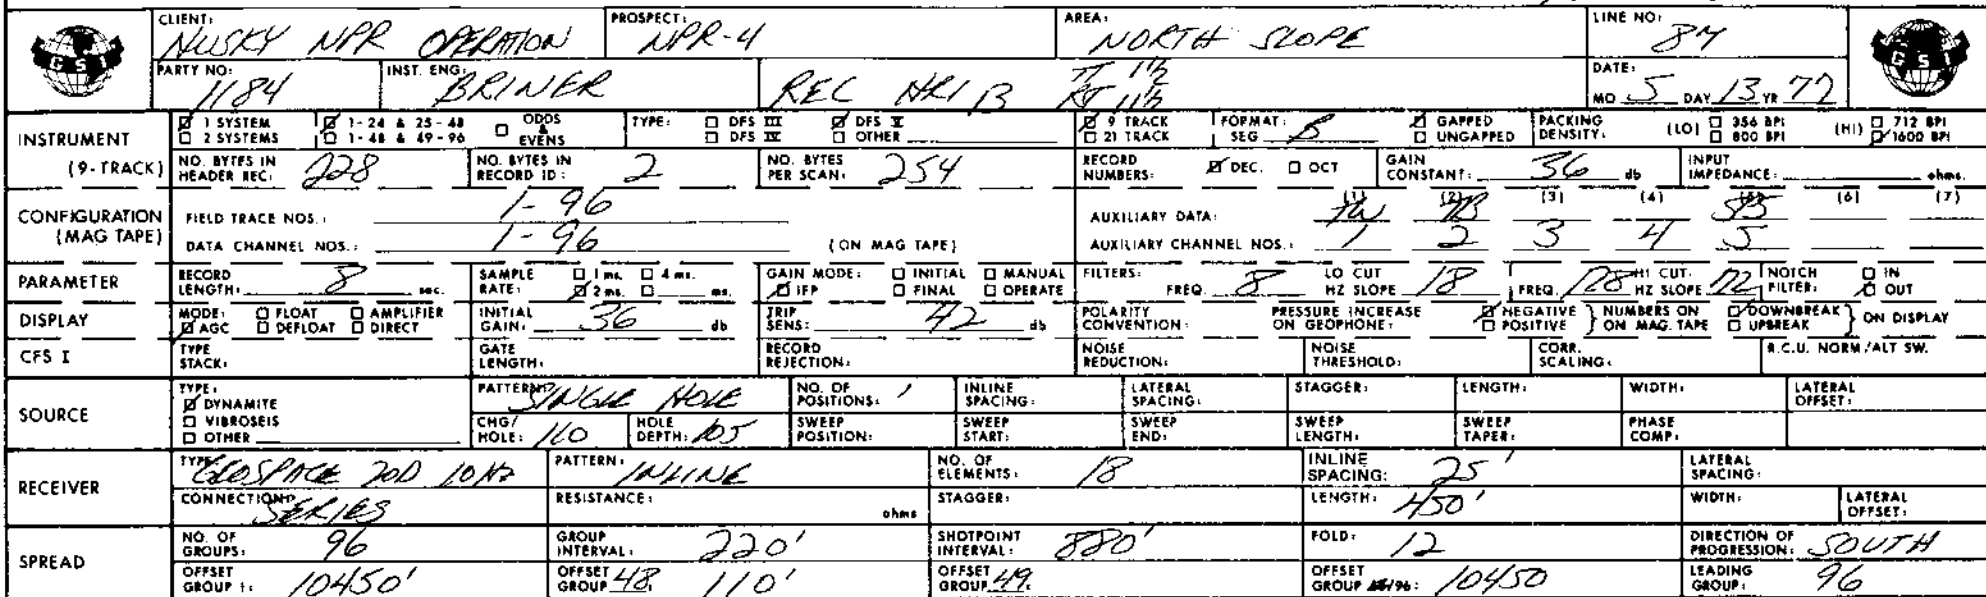 CLIENT: HUSKY NPR OPERATION PROSPECT: NPR-4 AREA: NORTH SLOPE LINE NO: 87
GSI
PARTY NO: 1184 INST. ENG: BRINER REC HRI B
DATE: MO 5 DAY 13 YR 77
GSI
INSTRUMENT (9-TRACK)
☑ 1 SYSTEM ☑ 1-24 & 25-48 ☐ ODDS & EVENS TYPE: ☐ DFS III ☑ DFS V ☑ 9 TRACK FORMAT: SEG B ☑ GAPPED PACKING DENSITY: (LO) ☐ 356 BPI (HI) ☐ 712 BPI
☐ 2 SYSTEMS ☐ 1-48 & 49-96 ☐ DFS IV ☐ OTHER ☐ 21 TRACK ☐ UNGAPPED ☐ 800 BPI ☑ 1600 BPI
NO. BYTES IN HEADER REC: 228 NO. BYTES IN RECORD ID: 2 NO. BYTES PER SCAN: 254 RECORD NUMBERS: ☑ DEC. ☐ OCT GAIN CONSTANT: 36 db INPUT IMPEDANCE: ohms.
CONFIGURATION (MAG TAPE)
FIELD TRACE NOS.: 1-96 AUXILIARY DATA: (1) TW (2) TB (3) (4) (6) (7)
DATA CHANNEL NOS.: 1-96 (ON MAG TAPE) AUXILIARY CHANNEL NOS.: 1 2 3 4 5
PARAMETER
RECORD LENGTH: 8 sec. SAMPLE RATE: ☐ 1 ms. ☐ 4 ms. ☑ 2 ms. ☐ ms. GAIN MODE: ☐ INITIAL ☐ MANUAL ☑ IFP ☐ FINAL ☐ OPERATE FILTERS: FREQ. 8 LO CUT HZ SLOPE 18 FREQ. 128 HI CUT. HZ SLOPE 72 NOTCH FILTER: ☐ IN ☑ OUT
DISPLAY
MODE: ☐ FLOAT ☐ AMPLIFIER ☑ AGC ☐ DEFLOAT ☐ DIRECT INITIAL GAIN: 36 db TRIP SENS: 42 db POLARITY CONVENTION: PRESSURE INCREASE ON GEOPHONE: ☑ NEGATIVE ☐ POSITIVE } NUMBERS ON ON MAG. TAPE ☑ DOWNBREAK ☐ UPBREAK } ON DISPLAY
CFS I TYPE STACK: GATE LENGTH: RECORD REJECTION: NOISE REDUCTION: NOISE THRESHOLD: CORR. SCALING: R.C.U. NORM/ALT SW.
SOURCE
TYPE: ☑ DYNAMITE ☐ VIBROSEIS ☐ OTHER
PATTERN: SINGLE HOLE NO. OF POSITIONS: 1 INLINE SPACING: LATERAL SPACING: STAGGER: LENGTH: WIDTH: LATERAL OFFSET:
CHG/HOLE: 110 HOLE DEPTH: 105 SWEEP POSITION: SWEEP START: SWEEP END: SWEEP LENGTH: SWEEP TAPER: PHASE COMP:
RECEIVER
TYPE: GEOSPACE 20D 10 HZ PATTERN: INLINE NO. OF ELEMENTS: 18 INLINE SPACING: 25' LATERAL SPACING:
CONNECTION: SERIES RESISTANCE: ohms STAGGER: LENGTH: 450' WIDTH: LATERAL OFFSET:
SPREAD
NO. OF GROUPS: 96 GROUP INTERVAL: 220' SHOTPOINT INTERVAL: 880' FOLD: 12 DIRECTION OF PROGRESSION: SOUTH
OFFSET GROUP 1: 10450' OFFSET GROUP 48: 110' OFFSET GROUP 49: OFFSET GROUP 96: 10450 LEADING GROUP: 96